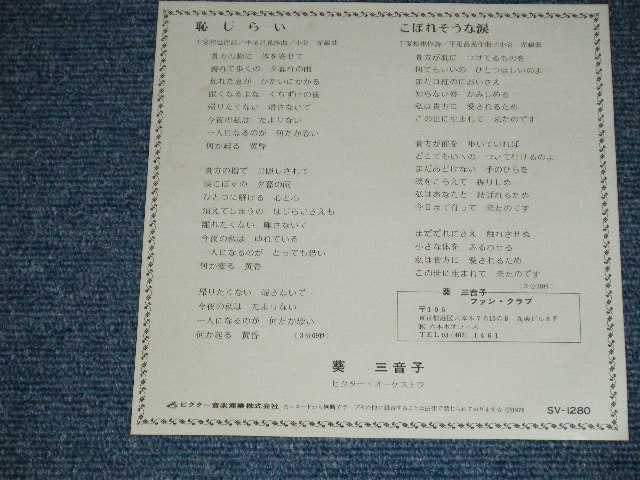 恥じらい
千家和也作詩／平尾昌晃作曲／小谷 充編曲
貴方の胸に 体を寄せて
濡れて歩くの 夕暮れの雨
乱れた息が ひたいにかかる
眠くなるよな くちずけの後
帰りたくない 帰さないで
今夜の私は たよりない
一人になるのが 何だか恐い
何か起る 黄昏
貴方の指で 目隠しされて
涙こぼすの 夕暮の雨
ひとつに解ける 心と心
消えてしまうの はじらいさえも
離れたくない 離さないで
今夜の私は ゆれている
一人になるのが とっても恐い
何か変る 黄昏
帰りたくない 帰さないで
今夜の私は たよりない
一人になるのが 何だか恐い
何か起る 黄昏 （3分09秒）
こぼれそうな涙
千家和也作詩／平尾昌晃作曲／小谷 充編曲
貴方が肌に つけてるものを
何でもいいの ひとつほしいのよ
まだ口紅のにおいさえ
知らない唇 かみしめる
私は貴方に 愛されるため
この世に生まれて 来たのです
貴方が前を 歩いていれば
どこでもいいの ついて行けるのよ
まだあどけない 手のひらを
涙をこらえて 握りしめ
私はあなたと 結ばれるため
今日まで育って 来たのです
まだだれにさえ 触れさせぬ
小さな体を ふるわせる
私は貴方に 愛されるため
この世に生まれて 来たのです
葵 三音子
ファン・クラブ
〒106
東京都港区六本木7の15の8
六本木オフィス
TEL03(405)1461
葵 三音子
ビクター・オーケストラ
ビクター音楽産業株式会社 ☆レコードから無断でテープその他に録音することは法律で禁じられております☆ Ⓟ1975 SV-1280